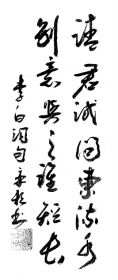 请君试问东流水
别意与之谁短长
李白词句